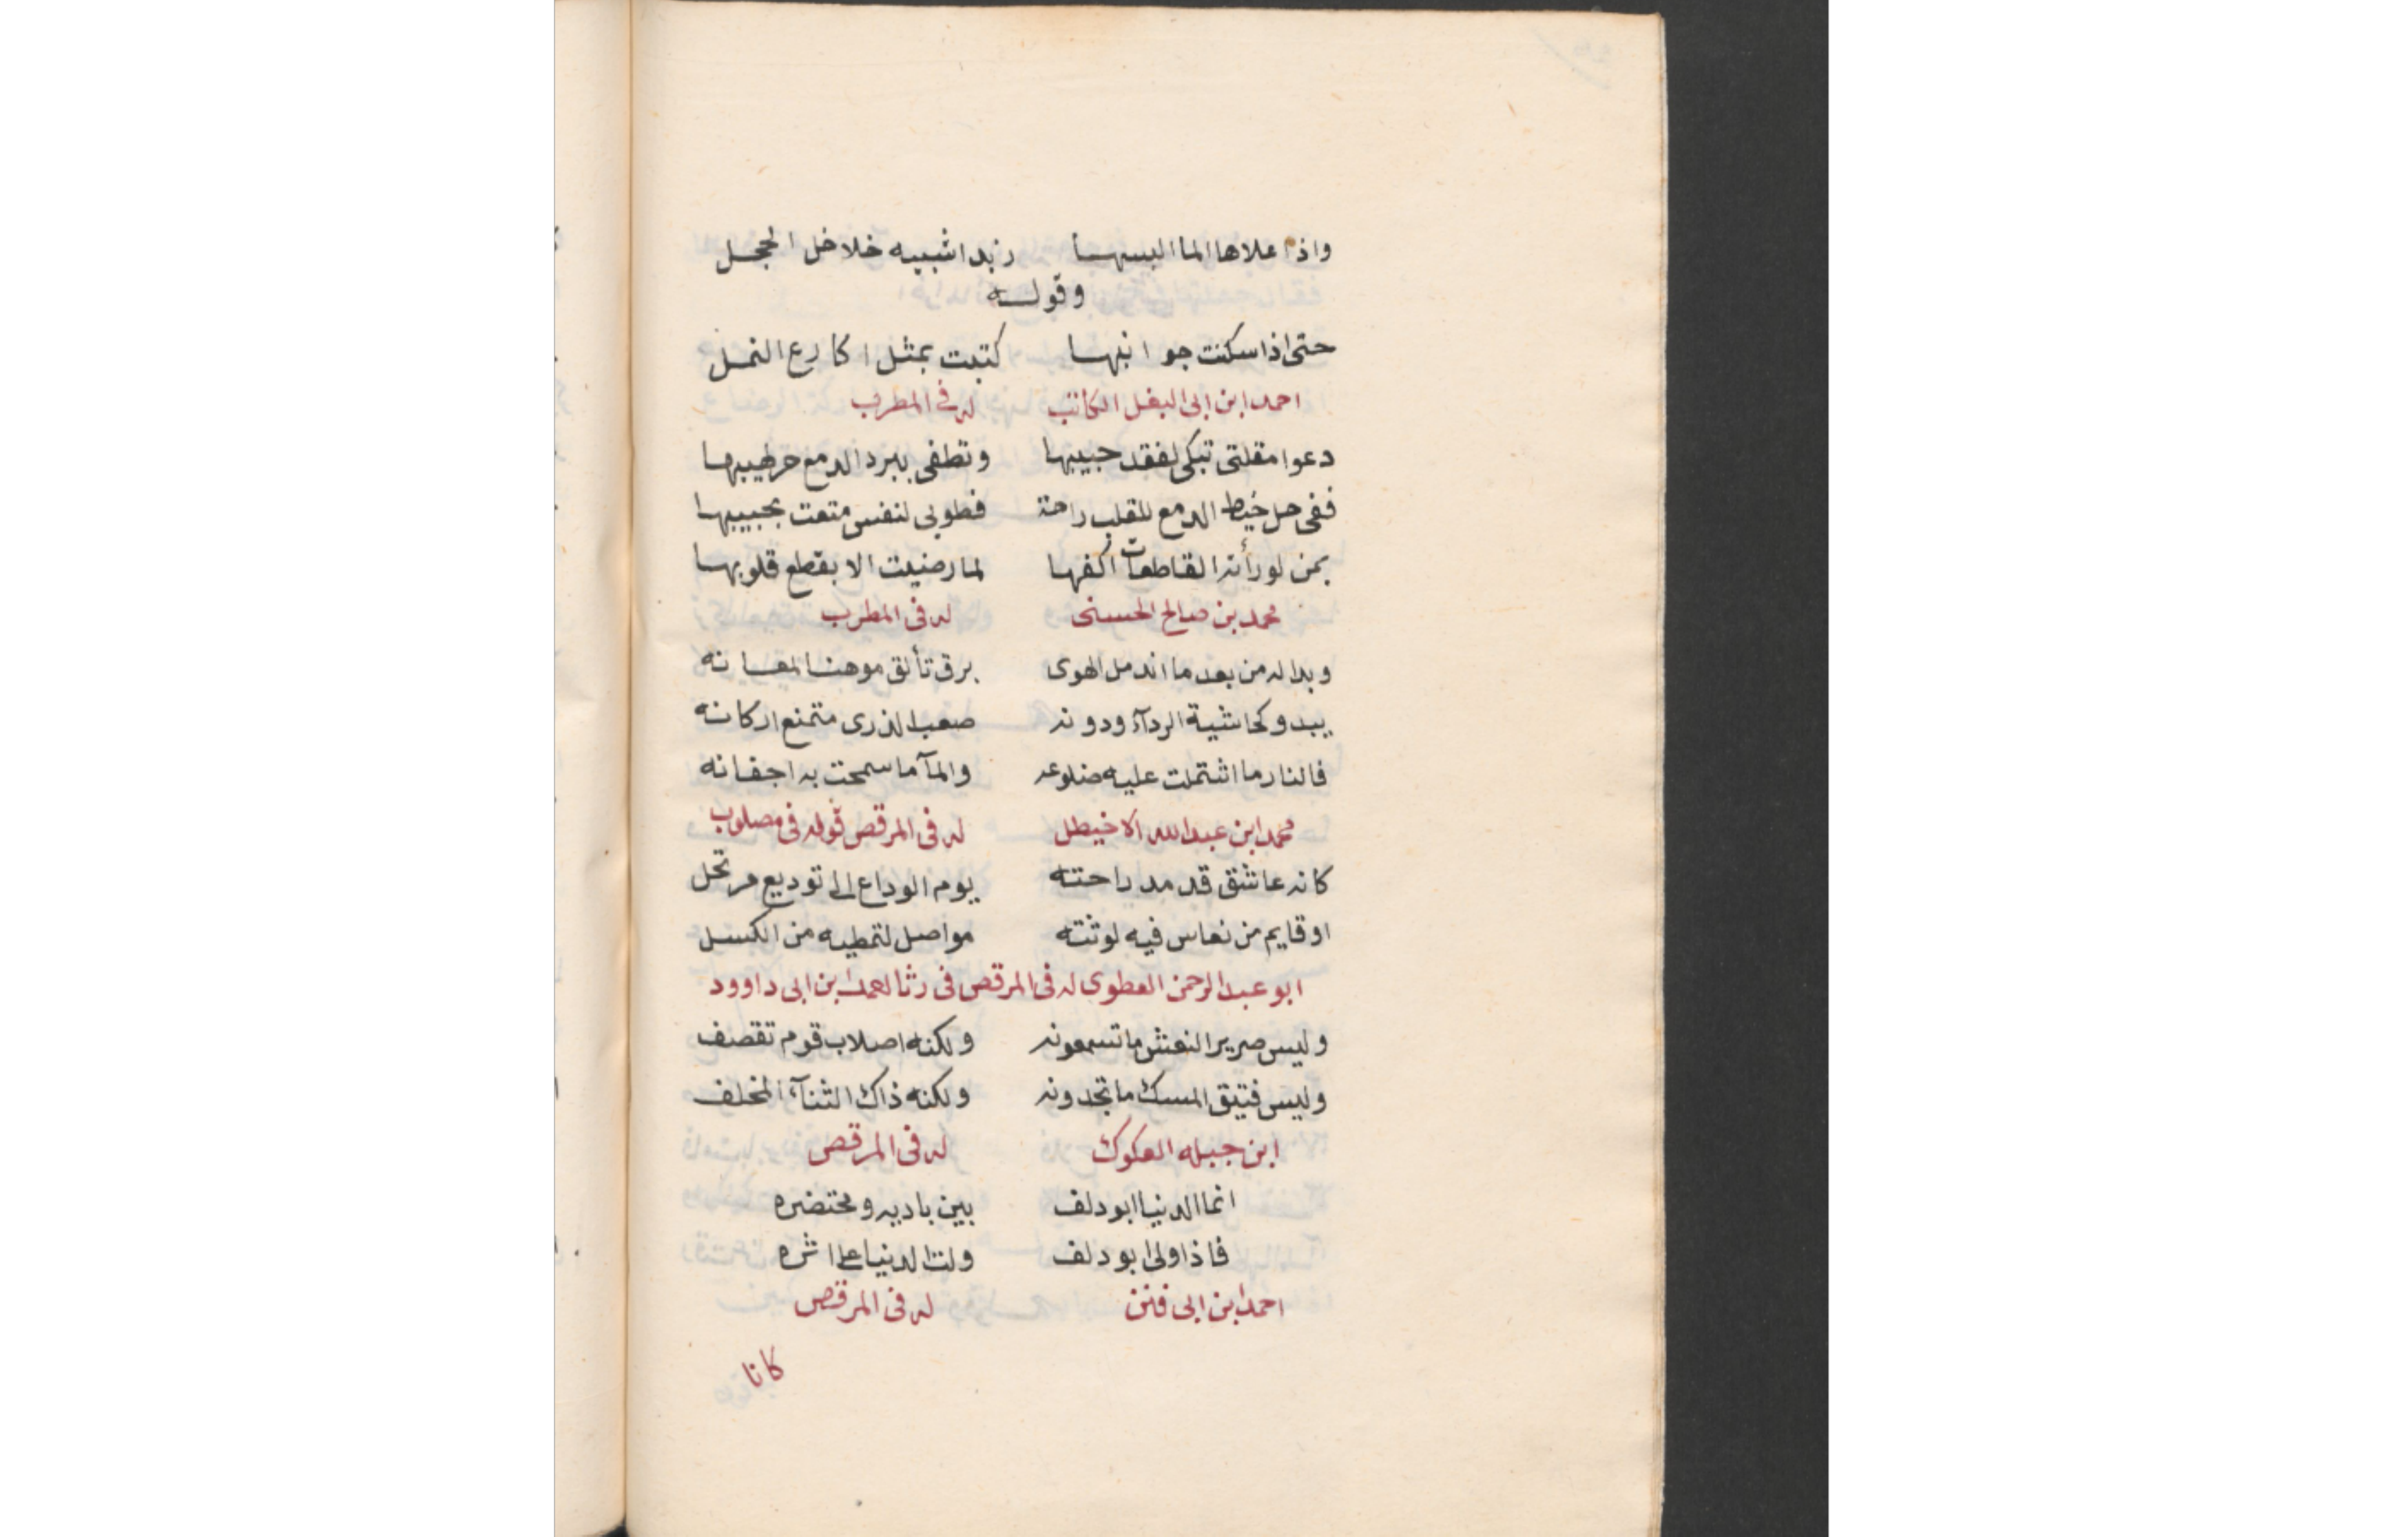 واذا علاها الما البسها زبدا شبيه خلاخل الحجل
وقوله
حتى اذا سكنت جوانبها كتبت بمثل اكارع النمل
احمد ابن ابى البغل الكاتب له فى المطرب
دعوا مقلتى تبكى لفقد حبيبها وتطفى ببرد الدمع حر لهيبها
ففى حل خيط الدمع للقلب راحة فطوبى لنفس متعت بحبيبها
بمن لو رأته القاطعات اكفها لما رضيت الا بقطع قلوبها
محمد بن صالح الحسنى له فى المطرب
وبدا له من بعد ما اندمل الهوى برق تألق موهنا لمعانه
يبدو كحاشية الردآء ودونه صعب الذرى متمنع اركانه
فالنار ما اشتملت عليه ضلوعه والمآ ما سمحت به اجفانه
محمد ابن عبد الله الاخيطل له فى المرقص قوله فى مصلوب
كانه عاشق قد مد راحته يوم الوداع الى توديع مرتحل
او قايم من نعاس فيه لوثته مواصل لتمطيه من الكسل
ابو عبد الرحمن العطوى له فى المرقص فى رثا احمد ابن ابى داوود
وليس صرير النعش ما تسمعونه ولكنه اصلاب قوم تقصف
وليس فتيق المسك ما تجدونه ولكنه ذاك الثنآء المخلف
ابن جبله العكوك له فى المرقص
انما الدنيا ابو دلف بين باديه ومحتضره
فاذا ولى ابو دلف ولت الدنيا على اثره
احمد ابن ابى فنن له فى المرقص
كانا